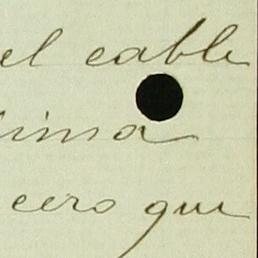 el cable
cero que